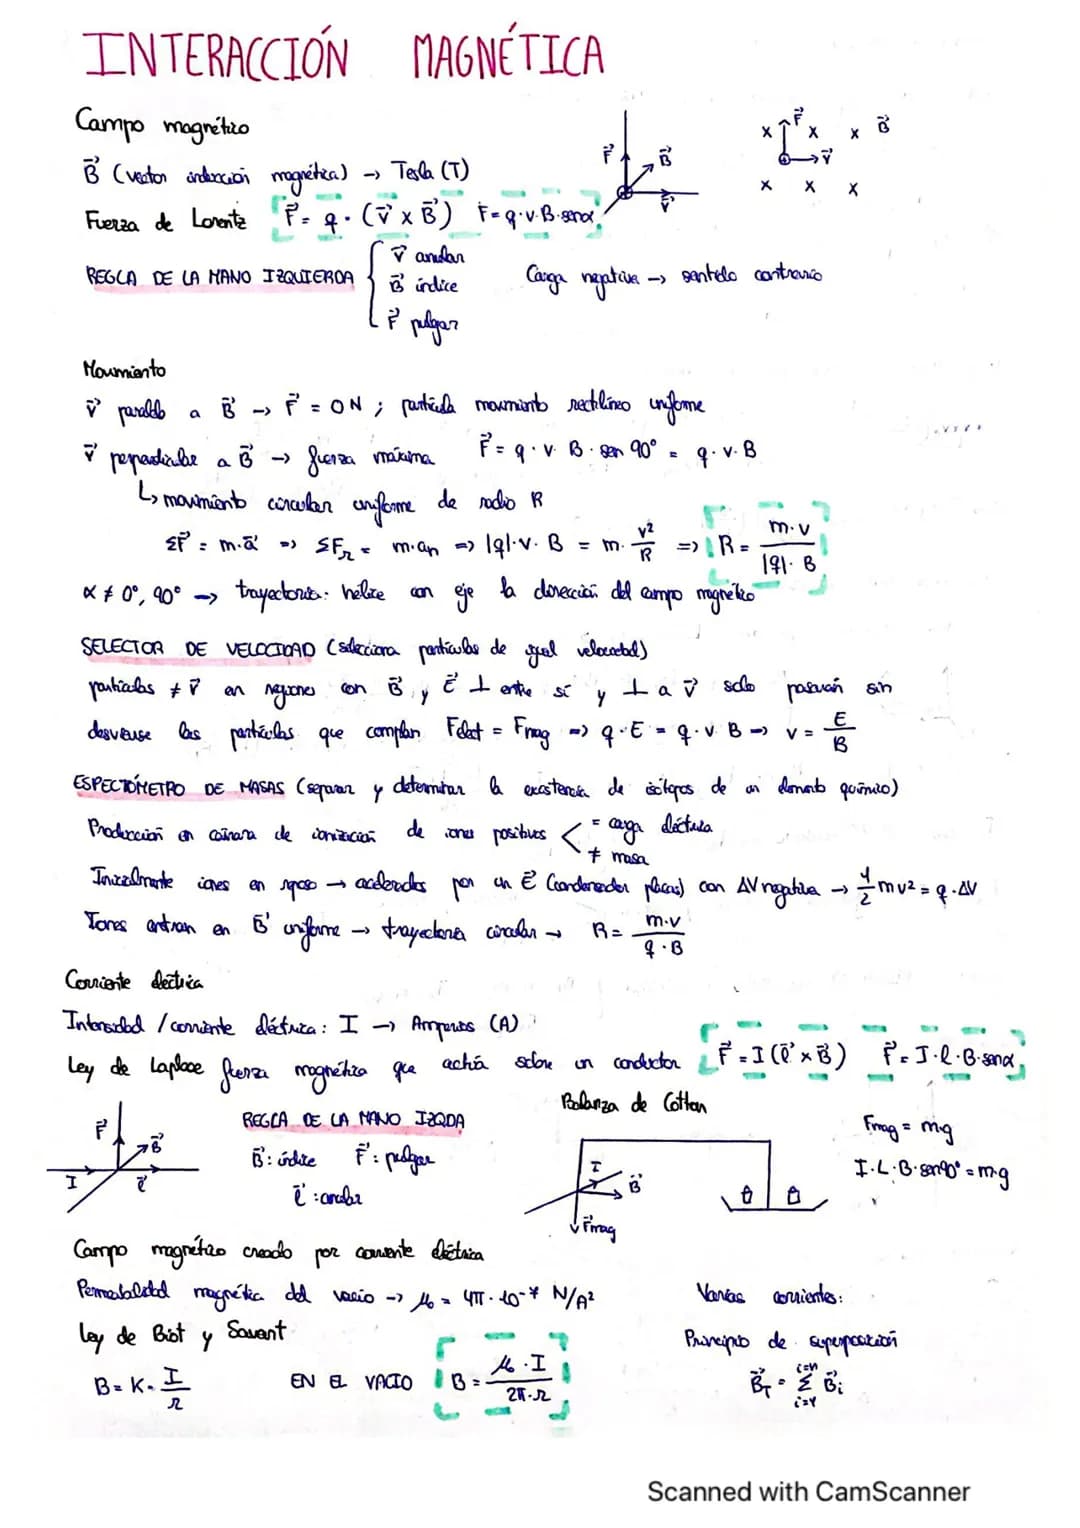 INTERACCIÓN MAGNÉTICA
Campo magnético
B⃗ (vector inducción magnética) → Tesla (T)
F⃗ B⃗ v⃗
x F⃗ x x B⃗
+ v⃗
x x x
Fuerza de Lorentz F⃗ = q · (v⃗ x B⃗) F = q·v·B·senα
REGLA DE LA MANO IZQUIERDA { v⃗ anular
B⃗ índice
F⃗ pulgar
Carga negativa → sentido contrario
Movimiento
v⃗ paralelo a B⃗ → F⃗ = 0 N ; partícula movimiento rectilíneo uniforme
v⃗ perpendicular a B⃗ → fuerza máxima F⃗ = q · v · B · sen 90° = q · v · B
↳ movimiento circular uniforme de radio R
ΣF⃗ = m·a⃗ => ΣFn = m·an => |q|·v·B = m· v²/R => R = m·v / |q|·B
α ≠ 0°, 90° → trayectoria: hélice con eje la dirección del campo magnético
SELECTOR DE VELOCIDAD (selecciona partículas de igual velocidad)
partículas ≠ v⃗ en regiones con B⃗ y E⃗ ⊥ entre sí y ⊥ a v⃗ solo pasarán sin
desviarse las partículas que cumplan Felect = Fmag => q·E = q·v·B → v = E/B
ESPECTÓMETRO DE MASAS (separar y determinar la existencia de isótopos de un elemento químico)
Producción en cámara de ionización de iones positivos < = carga eléctrica
≠ masa
Inicialmente iones en reposo → acelerados por un E⃗ (condensador placas) con ΔV negativa → 1/2 mv² = q·ΔV
Iones entran en B⃗ uniforme → trayectoria circular → R = m·v / q·B
Corriente eléctrica
Intensidad / corriente eléctrica: I → Amperes (A)
Ley de Laplace fuerza magnética que actúa sobre un conductor F⃗ = I (l⃗ x B⃗) F⃗ = I·l·B·senα
F⃗ B⃗ I l⃗
REGLA DE LA MANO IZQDA
B⃗: índice F⃗: pulgar
l⃗: anular
Balanza de Cotton
I B⃗ F⃗mag
Fmag = mg
I·L·B·sen90° = m·g
Campo magnético creado por corriente eléctrica
Permeabilidad magnética del vacío → μ₀ = 4π·10⁻⁷ N/A²
Ley de Biot y Savart
B = K · I/r
EN EL VACIO B = μ₀ · I / 2π·r
Varias corrientes:
Principio de superposición
B⃗T = Σ B⃗i
i=n
i=1
Scanned with CamScanner